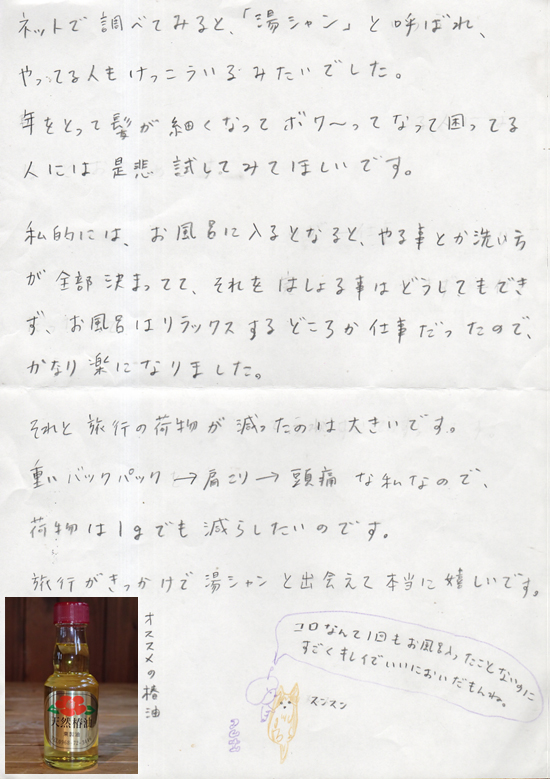 ネットで調べてみると、「湯シャン」と呼ばれ、
やってる人もけっこういるみたいでした。
年をとって髪が細くなってボワ〜ってなって困ってる
人には是悲試してみてほしいです。
私的には、お風呂に入るとなると、やる事とか洗い方
が全部決まってて、それをはしょる事はどうしてもでき
ず、お風呂はリラックスするどころか仕事だったので、
かなり楽になりました。
それと旅行の荷物が減ったのは大きいです。
重いバックパック→肩こり→頭痛な私なので、
荷物は1gでも減らしたいのです。
旅行がきっかけで湯シャンと出会えて本当に嬉しいです。
オススメの椿油
コロなんて1回もお風呂入ったことないのに
すごくキレイでいいにおいだもんね。
スンスン
天然椿油